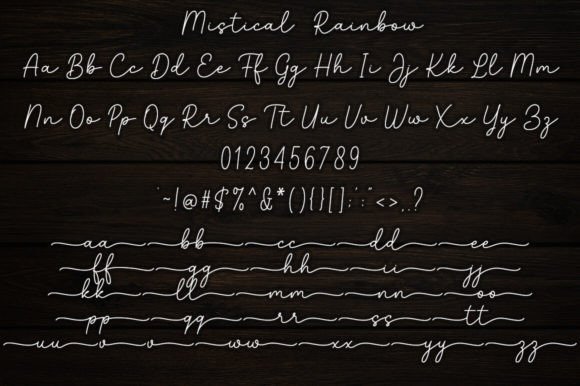 Mistical Rainbow
Aa Bb Cc Dd Ee Ff Gg Hh Ii Jj Kk Ll Mm
Nn Oo Pp Qq Rr Ss Tt Uu Vv Ww Xx Yy Zz
0123456789
`~!@#$%^&*(){}[];':"<>,.?
aa bb cc dd ee
ff gg hh ii jj
kk ll mm nn oo
pp qq rr ss tt
uu v v ww xx yy zz